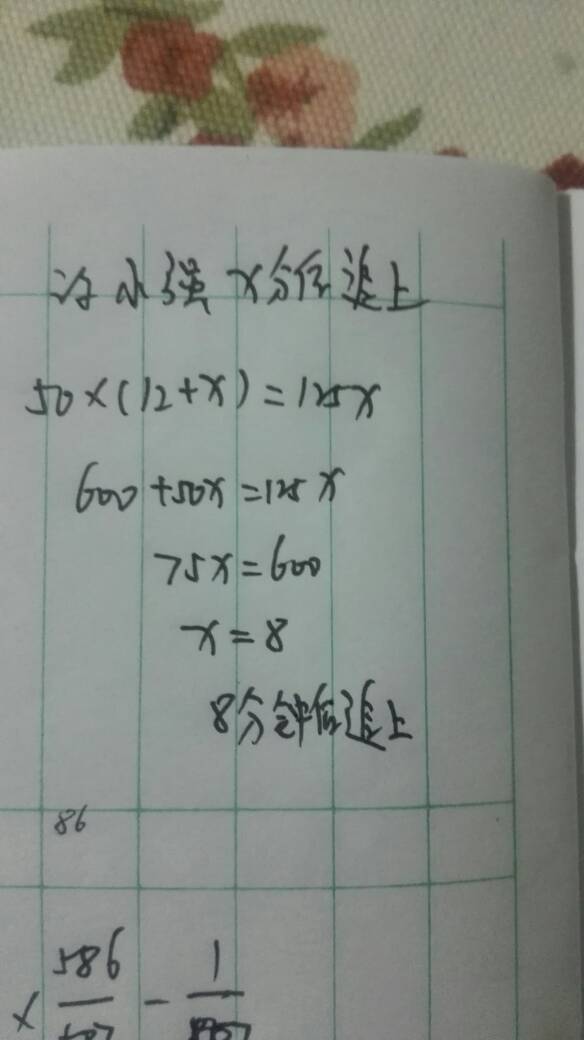 设小强x分后追上
50×(12+x)=125x
600+50x=125x
75x=600
x=8
8分钟后追上
86
× 586/587 - 1